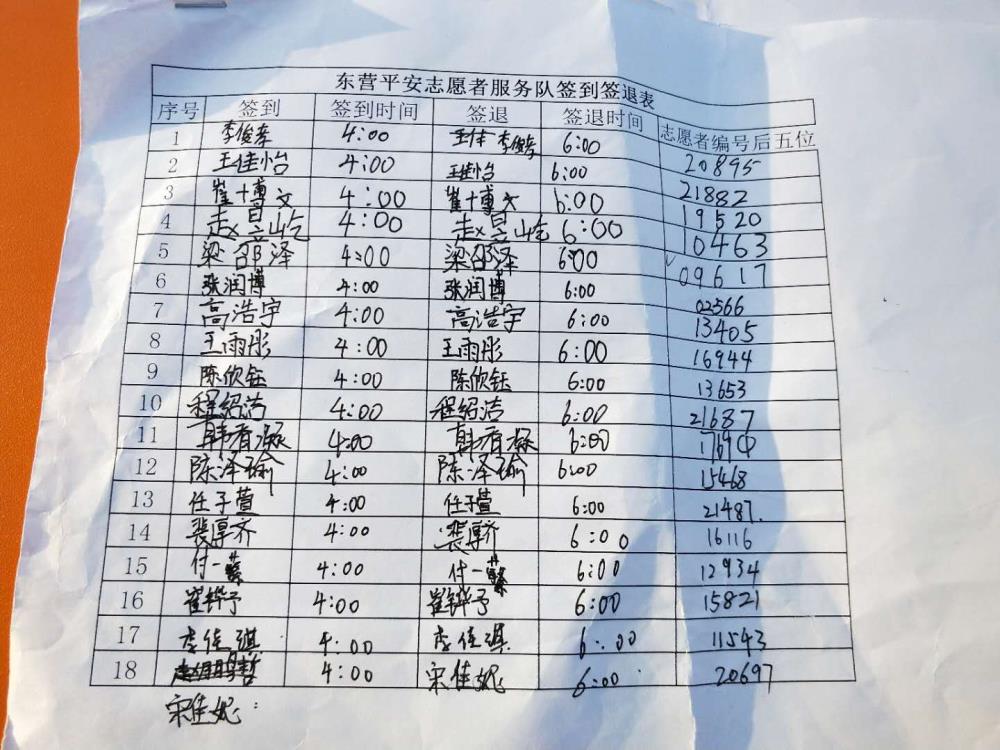 东营平安志愿者服务队签到签退表
序号 签到 签到时间 签退 签退时间 志愿者编号后五位
1 李俊孝 4:00 李俊孝 6:00 20895
2 王佳怡 4:00 王佳怡 6:00 21882
3 崔博文 4:00 崔博文 6:00 19520
4 赵昱屹 4:00 赵昱屹 6:00 10463
5 梁邵泽 4:00 梁邵泽 6:00 09617
6 张润博 4:00 张润博 6:00 02566
7 高浩宇 4:00 高浩宇 6:00 13405
8 王雨彤 4:00 王雨彤 6:00 16944
9 陈欣钰 4:00 陈欣钰 6:00 13653
10 程绍洁 4:00 程绍洁 6:00 21687
11 韩有凝 4:00 韩有凝 6:00
12 陈泽瑜 4:00 陈泽瑜 6:00 15468
13 任子萱 4:00 任子萱 6:00 21487.
14 裴厚齐 4:00 裴厚齐 6:00 16116
15 付一蘩 4:00 付一蘩 6:00 12934
16 崔铧予 4:00 崔铧予 6:00 15821
17 李佳琪 4:00 李佳琪 6:00 11543
18 4:00 宋佳妮 6:00 20697
宋佳妮